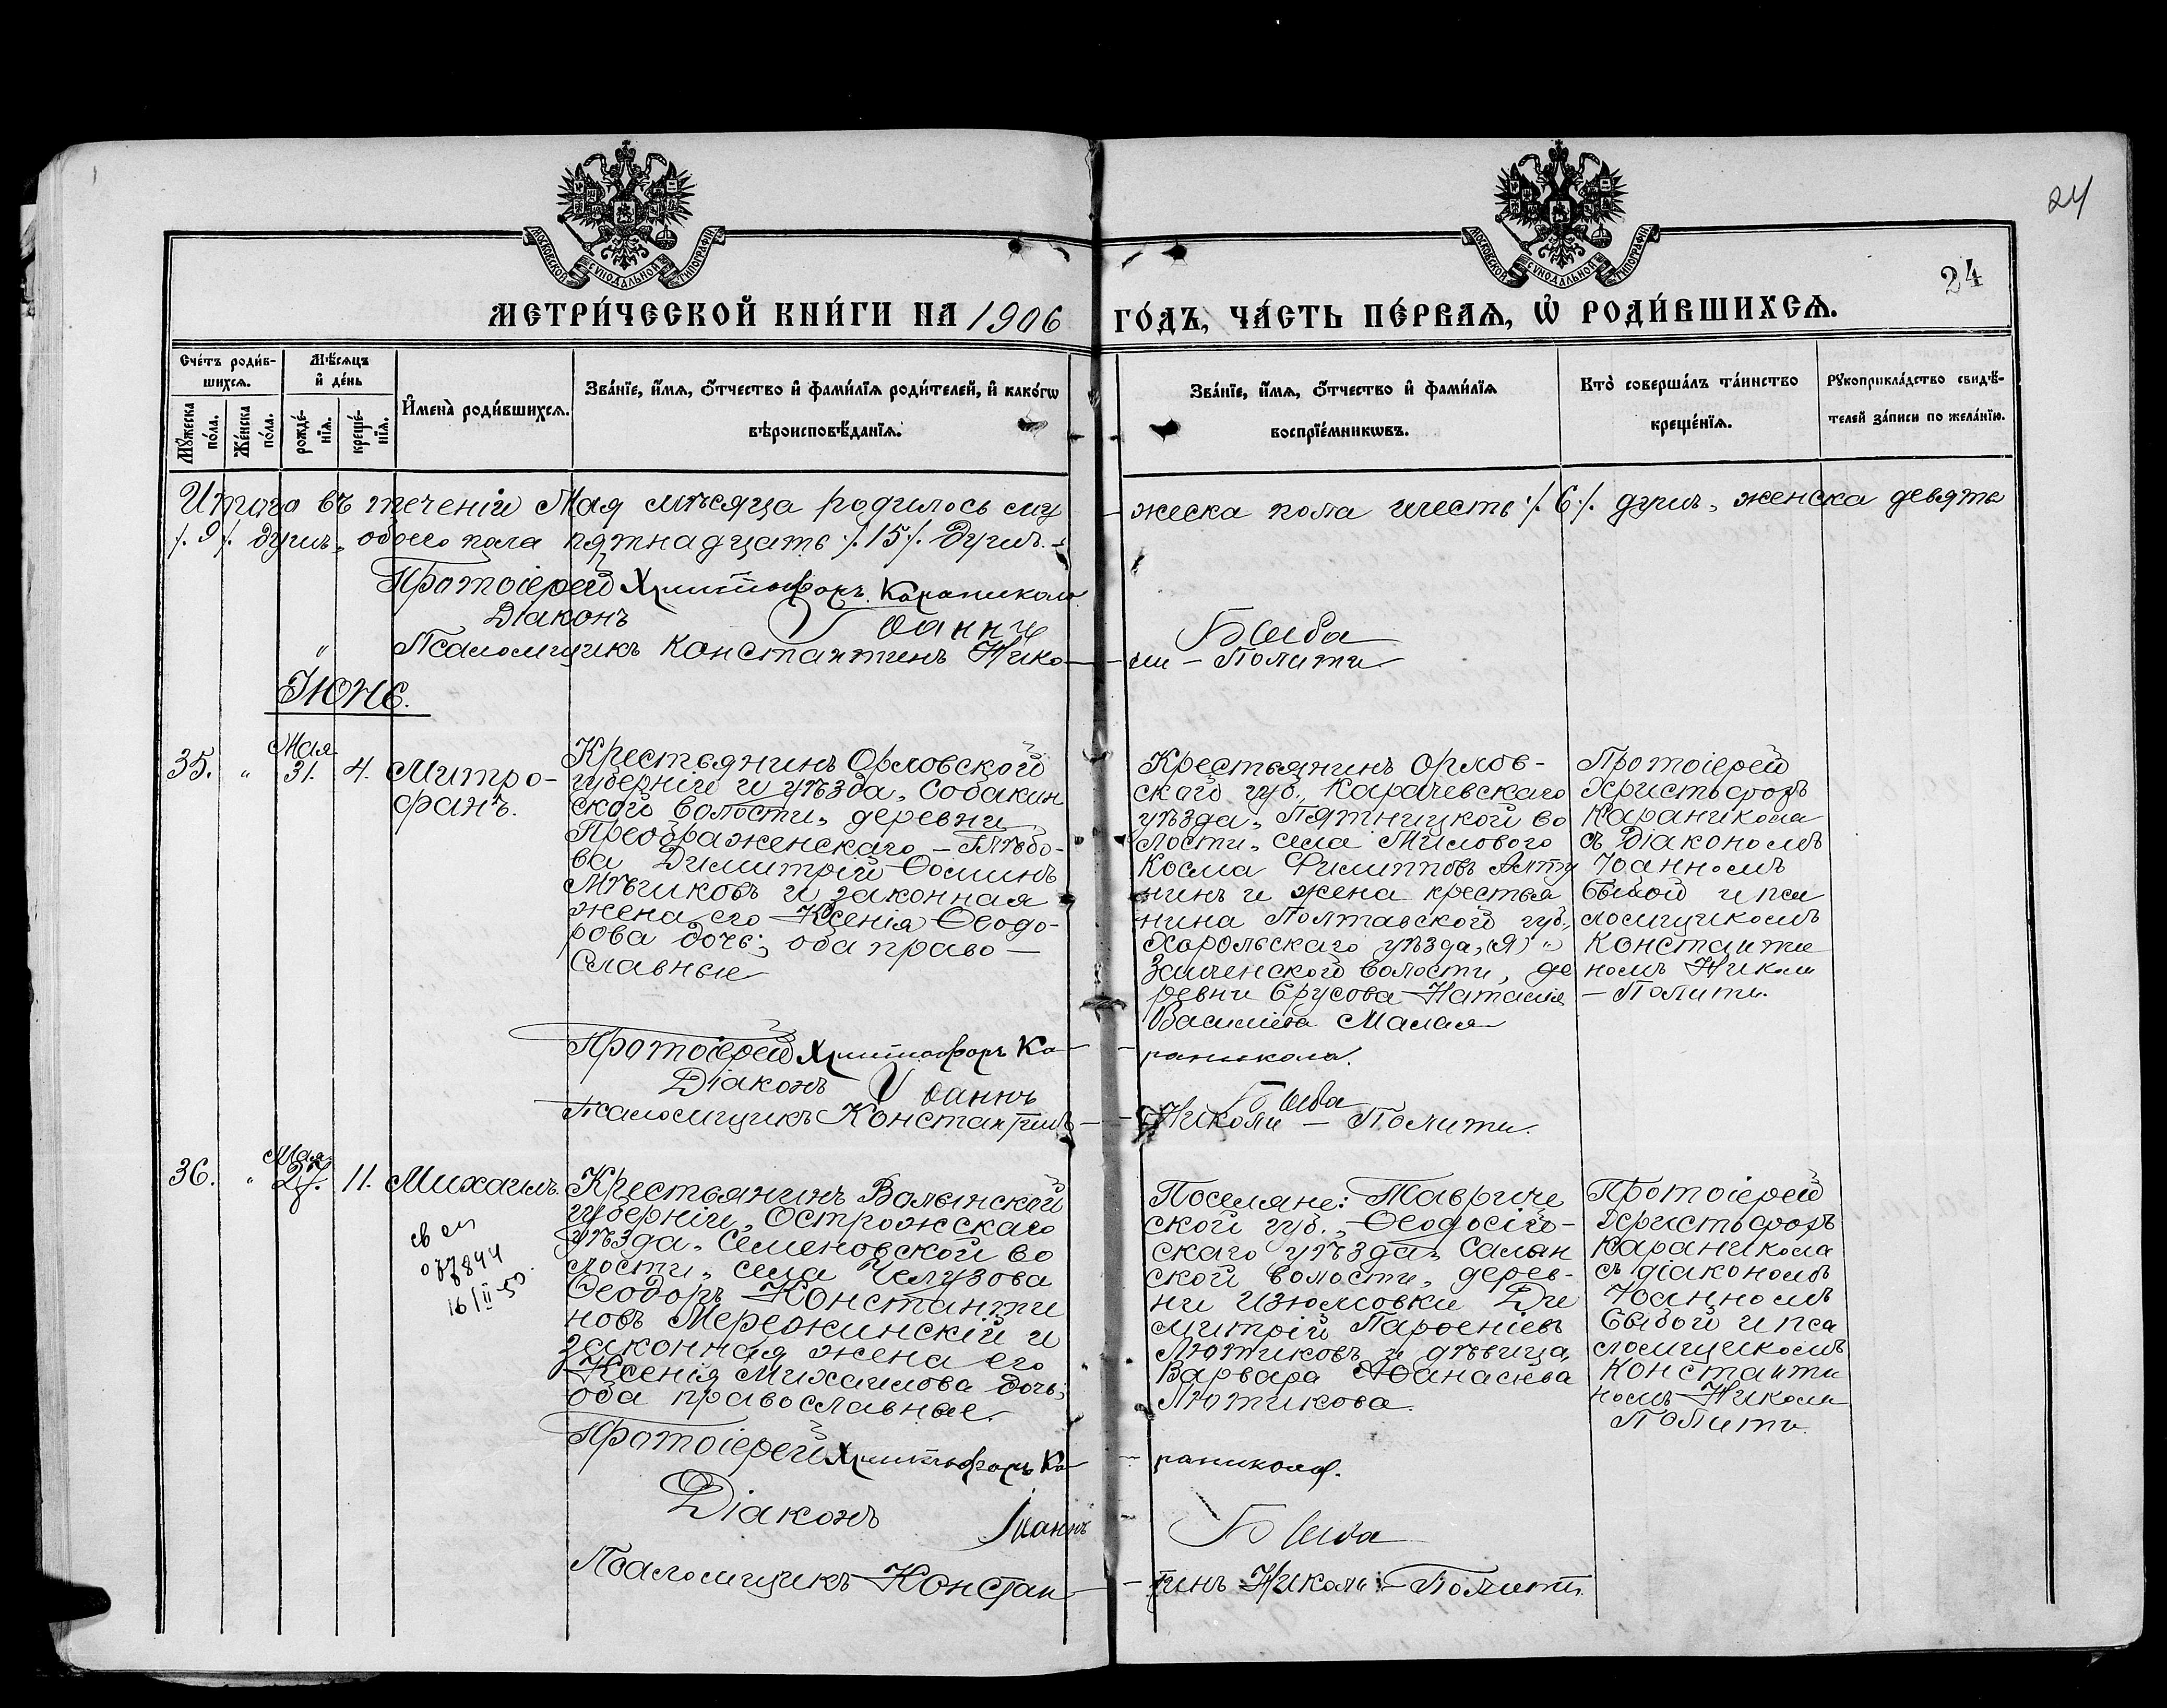 24
МОСКОВСКОЙ СУНОДАЛЬНОЙ ТИПОГРАФІИ
МОСКОВСКОЙ СУНОДАЛЬНОЙ ТИПОГРАФІИ
24
МЕТРИ́ЧЕСКОЙ КНИ́ГИ НА 1906 ГО́ДЪ, ЧА́СТЬ ПЕ́РВАѦ, Ѡ҆ РОДИ́ВШИХСѦ.
Сче́тъ роди́в-
шихсѧ.
Мѣ́сяцъ
и҆ де́нь
Мꙋ́жеска
по́ла.
Же́нска
по́ла.
рожде́-
нїѧ.
креще́-
нїѧ.
И҆мена̀ роди́вшихсѧ.
Зва́нїе, и҆́мѧ, ѻ҆́тчество и҆ фами́лїѧ роди́телей, и҆ како́гѡ
вѣроисповѣ́данїѧ.
Зва́нїе, и҆́мѧ, ѻ҆́тчество и҆ фами́лїѧ
воспрїе́мникѡвъ.
Кто̀ соверша́лъ та́инство
креще́нїѧ.
Рꙋкоприкла́дство свидѣ́-
телей за́писи по жела́нїю.
Итого въ теченіи Мая мѣсяца родилось му жеска пола шесть ·/.6·/. душъ, женска девять
·/.9·/. душъ, обоего пола пятнадцать ·/.15·/. душъ.
Протоіерей Христофоръ Караникола
Діаконъ Іоаннъ Быба
" Псаломщикъ Константинъ Нико ли - Полити
Іюнь.
35. " Мая 31. 4. Митро-
фанъ.
Крестьянинъ Орловской
губерніи и уѣзда, Собакин
ской волости, деревни
Преображенскаго - Глѣбо-
ва Димитрій Ѳоминъ
Мѣшковъ и законная
жена его Ксенія Ѳеодо-
рова дочь; оба право-
славные
Крестьянинъ Орлов-
ской губ., Карачевскаго
уѣзда, Пятницкой во
лости, села Милового
Косма Филипповъ Алту
нинъ и жена крестья
нина Полтавской губ.,
Хорольскаго уѣзда,
волости, де
ревни Наталія
Малая
Протоіерей
Христофоръ
Караникола
съ Діакономъ
Іоанномъ
Быбой и пса
ломщикомъ
Константи
номъ Николи
- Полити.
Протоіерей Христофоръ Ка раникола.
Діаконъ Іоаннъ Быба
Псаломщикъ Константинъ Николи - Полити.
36. " Мая 27. 11. Михаилъ.
Крестьянинъ Волынской
губерніи, Острожскаго
уѣзда, Семеновской во
лости, села Челузова
Ѳеодоръ Константи
новъ Мережинскій и
законная жена его
Ксенія Михаилова дочь;
оба православные.
16/II-50
Поселяне: Тавриче
ской губ., Ѳеодосій-
скаго уѣзда, Салын
ской волости, дерев-
ни Изюмовки Ди
митрій Парѳеніевъ
Лютиковъ и дѣвица,
Варвара Аѳанасіева
Лютикова.
Протоіерей
Христофоръ
Караникола
съ діакономъ
Іоанномъ
Быбой и пса
ломщикомъ
Константи
номъ Николи
Полити.
Протоіерей Христофоръ Ка раникола.
Діаконъ Іоаннъ Быба
Псаломщикъ Констан тинъ Николи - Полити.